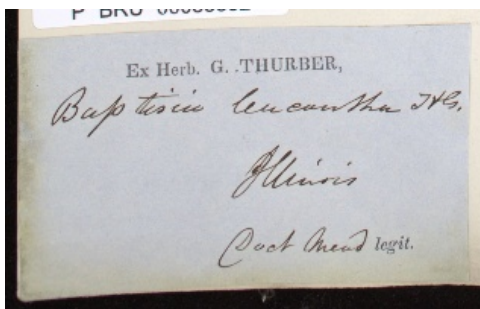 Ex Herb. G. THURBER,
Baptisia leucantha T&G.
Illinois
Doct Mead legit.